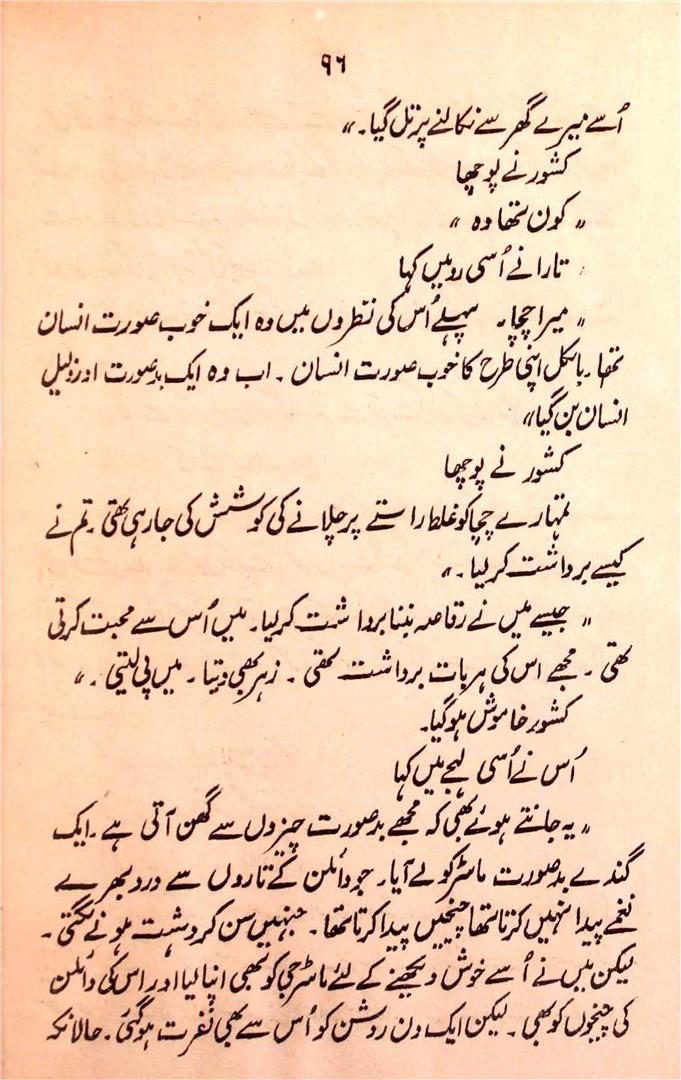 ۹۶
اُسے میرے گھر سے نکالنے پر تل گیا۔"
کشور نے پوچھا
"کون تھا وہ"
تارا نے اُسی رو میں کہا
"میرا چچا۔ پہلے اُس کی نظروں میں وہ ایک خوب صورت انسان
تھا۔ بالکل اپنی طرح کا خوب صورت انسان ۔ اب وہ ایک بدصورت اور ذلیل
انسان بن گیا"
کشور نے پوچھا
تمہارے چچا کو غلط راستے پر چلانے کی کوشش کی جا رہی تھی۔ تم نے
کیسے برداشت کر لیا۔"
"جیسے میں نے رقاصہ بننا برداشت کر لیا۔ میں اُس سے محبت کرتی
تھی ۔ مجھے اس کی ہر بات برداشت تھی ۔ زہر بھی دیتا ۔ میں پی لیتی ۔"
کشور خاموش ہو گیا۔
اُس نے اُسی لہجے میں کہا
"یہ جانتے ہوئے بھی کہ مجھے بدصورت چیزوں سے گھن آتی ہے ۔ ایک
گندے بدصورت ماسٹر کو لے آیا۔ جو وائلن کے تاروں سے درد بھرے
نغمے پیدا نہیں کرتا تھا چیخیں پیدا کرتا تھا۔ جنہیں سن کر دہشت ہونے لگتی ۔
لیکن میں نے اُسے خوش دیکھنے کے لئے ماسٹر جی کو بھی اپنا لیا اور اس کی وائلن
کی چیخوں کو بھی ۔ لیکن ایک دن روشن کو اُس سے بھی نفرت ہو گئی ۔ حالانکہ